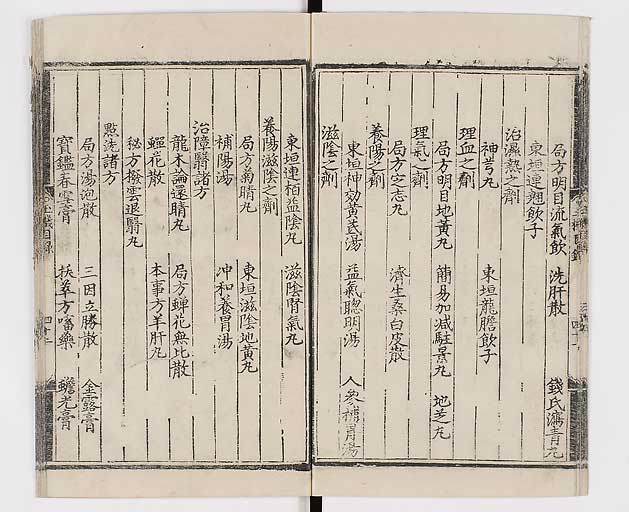 局方明目流氣飲 洗肝散 錢氏瀉青丸
東垣連翹飲子
治濕熱之劑
神芎丸 東垣龍膽飲子
理血之劑
局方明目地黃丸 簡易加減駐景丸 地芝丸
理氣之劑
局方定志丸 濟生桑白皮散
養陽之劑
東垣神効黃芪湯 益氣聰明湯 人參補胃湯
滋陰之劑
東垣連栢益陰丸 滋陰腎氣丸
養陽滋陰之劑
局方菊睛丸 東垣滋陰地黃丸
補陽湯 冲和養胃湯
治障瞖諸方
龍木論還睛丸 局方蟬花無比散
蟬花散 本事方羊肝丸
秘方撥雲退瞖丸
點洗諸方
局方湯泡散 三因立勝散 金露膏
寶鑑春雪膏 扶夀方𠻳藥 蟾光膏
目錄 四十二